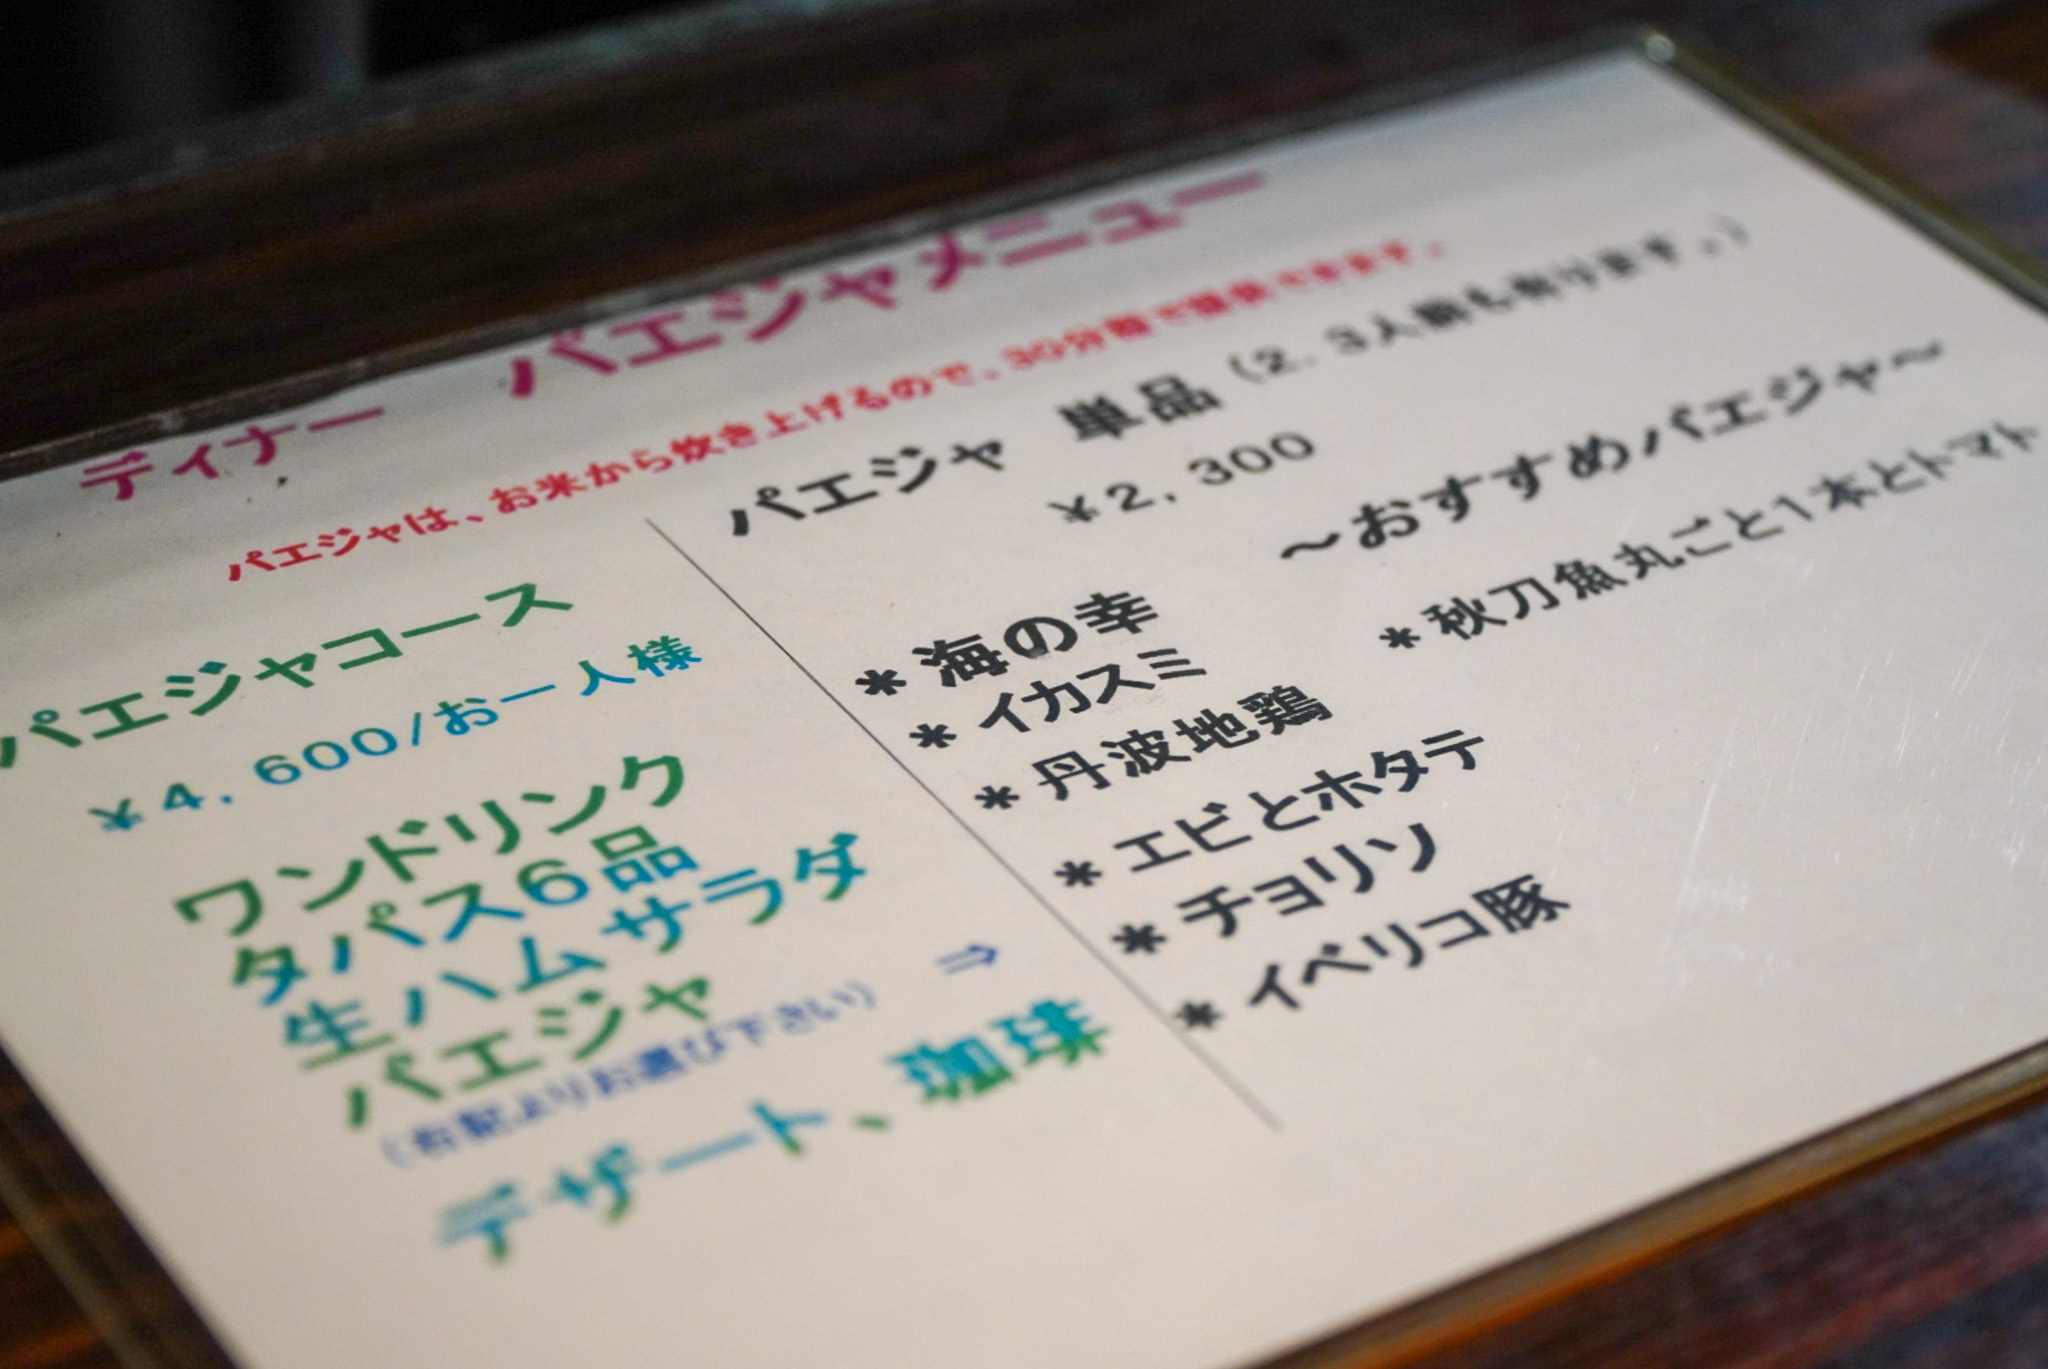 ディナー パエジャメニュー
パエジャは、お米から炊き上げるので、30分程で提供できます。
パエジャコース
¥4,600/お一人様
ワンドリンク
タパス6品
生ハムサラダ
パエジャ
(右記よりお選び下さい) ⇒
デザート、珈琲
パエジャ 単品(2.3人前も有ります。)
¥2,300
*海の幸
*イカスミ
*丹波地鶏
*エビとホタテ
*チョリソ
*イベリコ豚
～おすすめパエジャ～
*秋刀魚丸ごと1本とトマト